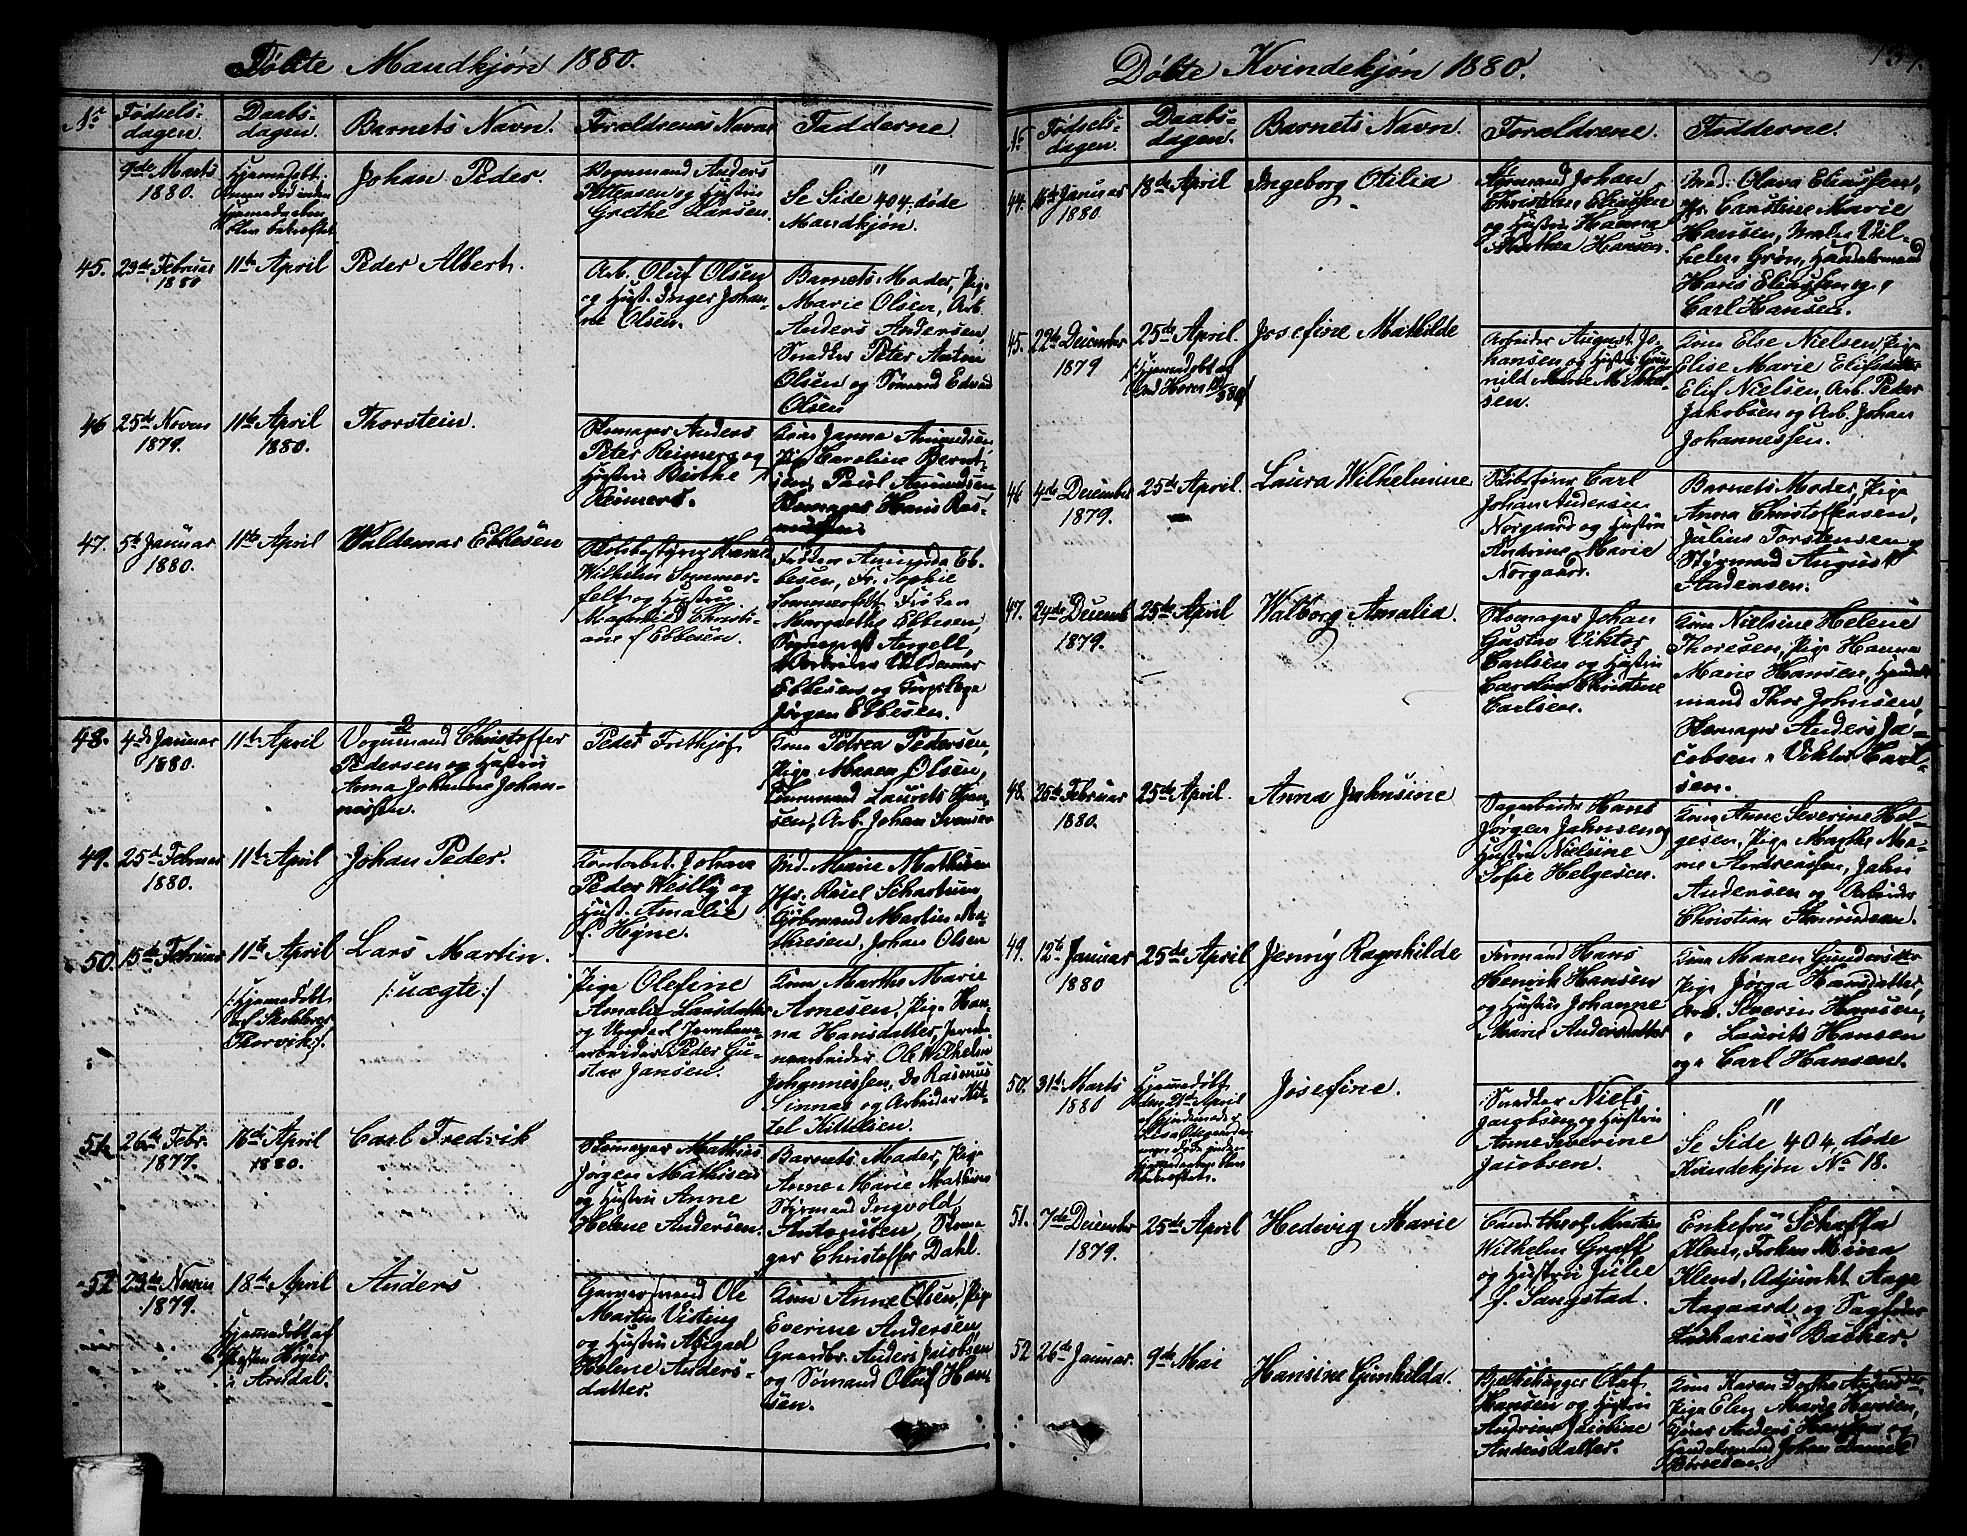 Døbte Mandkjøn 1880.
No
Fødsels-
dagen.
Daabs-
dagen.
Barnets Navn.
Forældrenes Navne
Fadderne.
9de Marts
1880.
Hjemmedøbt
Johan Peder.
Anders
og Hustru
Grethe Hansen.
"
Se Side 404, døde
Mandkjøn.
45.
29de Februar
1880
11te April
Peder Albert.
Arb. Oluf Olsen
og Hust. Inger Johan-
ne Olsen.
Barnets Moder, Pige
Marie Olsen, Arb.
Anders Andersen,
Snedker Peter Anton
Olsen og Sømand Edvard
Olsen
46
25de Novem
1879.
11te April
1880.
Thorstein.
Skomager Anders
Peter Reimers og
Hustru Birthe
Reimers.
Kone Janna Amundsen
Pige Caroline Bernt-
sen, Paul Amundsen
Skomager Hans Ras-
mussen.
47.
5te Januar
1880.
11te April
Waldemar Ebbesen
Skolebestyrer
Wilhelm Sommer-
felt og Hustru
Magnhild Christi-
ane f. Ebbesen.
Amunda Eb-
besen, Fr. Sophie
Sommerfelt Frøken
Margrethe Ebbesen,
Sogneprest Angell,
Valdemar
Ebbesen og Corpslæge
Jørgen Ebbesen.
48.
4de Januar
1880.
11te April
Vognmand Christoffer
Pedersen og Hustru
Anna Johanne Johan-
nessen.
Peder Frithjof.
Kone Petrea Pedersen,
Pige Maren Olsen,
Tømmermand Laurits Han-
sen, Arb. Johan Svensen
49.
25de Februar
1880.
11te April
Johan Peder.
Johan
Peder Vestby og
Hust. Amalie
f. Heyne.
Md. Marie Mathisen
Fr. Rasel Schartum
Kjøbmand Martin Ma-
thiesen, Johan Olsen
50.
15de Februar
11te April
/:Hjemmedøbt
af Skolelærer
Thorvik:/
Lars Martin.
/:uægte:/
Pige Olefine
Amalie Larsdatter
og Ungkarl Jernbane-
arbeider Peder Gu-
stav Jansen.
Kone Marthe Marie
Arnesen, Pige Han-
na Hansdatter, Jernba-
nearbeider Ole Wilhelm
Johannessen, Do Rasmus
Sinnas og Arbeider Kit-
tel Kittilsen
51.
26de Febr.
1877.
16de April
1880.
Carl Fredrik
Skomager Mathias
Jørgen Mathisen
og Hustru Anne
Helene Andersen.
Barnets Moder, Pige
Anne Marie Mathisen
Styrmand Ingvold
Antonisen, Skoma
ger Christoffer Dahl.
52
23de Novem
1879.
18de April
Hjemmedøbt af
Høyer
i Arendal.
Anders
Garversvend Ole
Martin Visting
og Hustru Abigael
Helene Anders-
datter.
Kone Anne Olsen, Pige
Everine Andersen
Gaardbr. Anders Jacobsen
og Sømand Oluf Han-
sen.
Døbte Kvindekjøn 1880.
No
Fødsels-
dagen.
Daabs-
dagen.
Barnets Navn.
Forældrene.
Fadderne.
44.
Januar
1880
18de April
Ingeborg Otilia
Styrmand Johan
Christian Eliassen
og Hustru Hanna
Mathea Hansen.
Md: Olava Eliassen,
Fr. Canstine Marie
Hansen, Maler Vil-
helm Grøn, Handelsmand
Hans Eliassen og
Carl Hansen.
45.
22de December
1879
25de April.
Josefine Mathilde
Arbeider August Jo-
hansen og Hustru Gun
nild Marie Mikkel-
sen.
Kone Else Nielsen, Pige
Elise Marie
Nielsen, Arb. Peder
Jakobsen og Arb. Johan
Johannessen.
46
4de December
1879.
25de April.
Laura Wilhelmine
Skibsfører Carl
Johan Andersen
Norgaard og Hustru
Andrine Marie
Norgaard.
Barnets Moder, Pige
Anna Christoffersen,
Julius Torstensen og
Styrmand August
Andersen.
47.
24de Decemb
1879.
25de April
Walborg Amalia.
Skomager Johan
Gustav Viktor
Carlsen og Hustru
Caroline Christine
Carlsen.
Kone Nielsine Helene
Thoresen, Pige Hanna
Marie Hansen,
mand Thor Johnsen,
Skomager Anders Ja-
cobsen, Viktor Carl-
sen.
48.
25de Februar
1880.
25de April.
Anna Jahnsine
Sagarbeider Hans
Jørgen Jahnsen og
Hustru Nielsine
Sofie Helgesen.
Kone Anne Severine Hel-
gesen, Pige Marthe Ma-
rie Andreassen, Jahn
Andersen og Arbeider
Christian Amundsen.
49.
12te Januar
1880
25de April
Jenny Ragnhilde
Formand Hans
Henrik Hansen
og Hustru Johanne
Marie Andersdatter
Kone Maren Gundersen
Pige Jørga Hansdatter,
Arb. Severin Hansen,
" Laurits Hansen
og " Carl Hansen.
50.
31te Marts
1880
Hjemmedøbt
den 21de April
af Gjordemoder
Josefine.
Snedker Niels
Jacobsen og Hustru
Anne Severine
Jacobsen.
"
Se Side 404, døde
Kvindekjøn No 18.
51.
7de December
1879.
25de April
Hedwig Marie
Cand. theol. Martin
Wilhelm Graff
og Hustru Julie
f. Sangstad.
Enkefru Schaffa
Klem, Frøken Mina
Klem, Adjunkt Aage
Aagaard og Sagfører
Zacharias Backer.
52
26de Januar.
9de Mai
Hansine Gunhilda.
Olaf
Hansen og Hustru
Andrine Jacobine
Andersdatter.
Kone Karen Dorthe
Pige Elen Marie Hansen,
Anders Hansen og
Handelsmand Johan Daniel